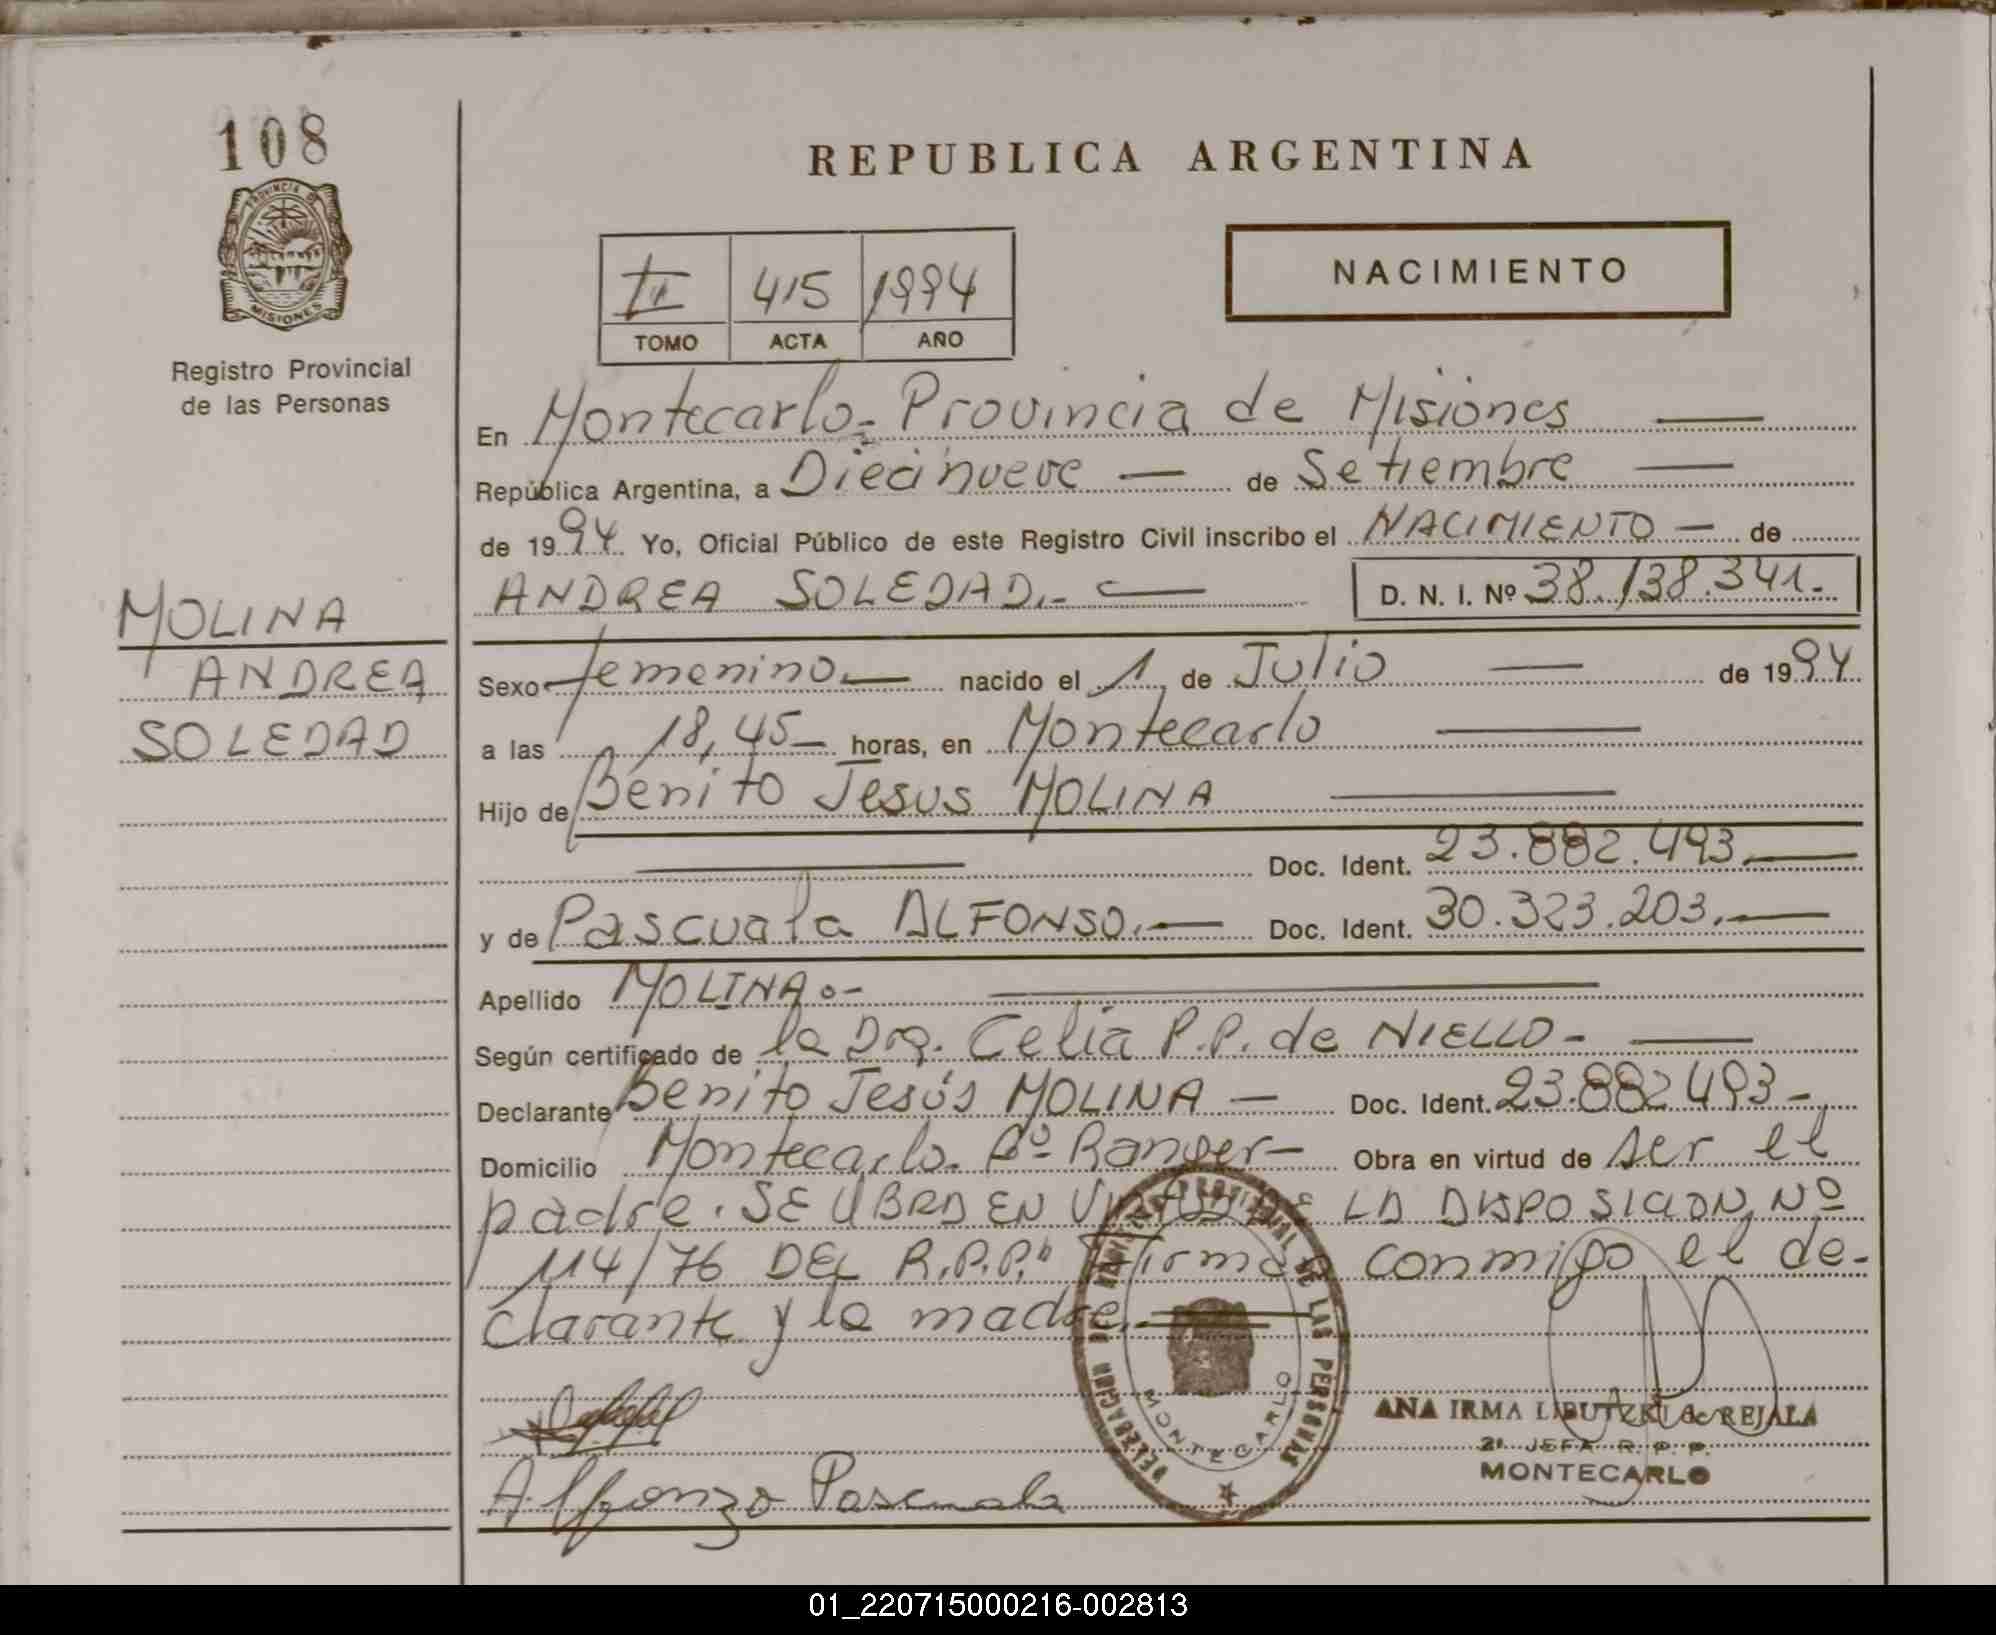 108
PROVINCIA DE
MISIONES
Registro Provincial
de las Personas
MOLINA
ANDREA
SOLEDAD
REPUBLICA ARGENTINA
II 415 1994
TOMO ACTA AÑO
NACIMIENTO
En Montecarlo - Provincia de Misiones
República Argentina, a Diecinueve de Setiembre
de 1994 Yo, Oficial Público de este Registro Civil inscribo el NACIMIENTO de
ANDREA SOLEDAD.- D. N. I. Nº 38.138.341.-
Sexo femenino nacido el 1 de Julio de 1994
a las 18,45 horas, en Montecarlo
Hijo de Benito Jesus MOLINA
Doc. Ident. 23.882.493.
y de Pascuala ALFONSO. Doc. Ident. 30.323.203.
Apellido MOLINA.-
Según certificado de la Dra. Celia P.P. de NIELLO -
Declarante Benito Jesús MOLINA - Doc. Ident. 23.882.493 -
Domicilio Montecarlo - Bº Ranger - Obra en virtud de ser el
padre. SE OBRA EN VIRTUD DE LA DISPOSICION Nº
114/76 DEL R.P.P." Firman conmigo el de-
clarante y la madre.
DELEGACION REGISTRO PROVINCIAL DE LAS PERSONAS
MONTECARLO
Alfonzo Pascuala
ANA IRMA de REJALA
2º JEFA R. P. P.
MONTECARLO
01_220715000216-002813